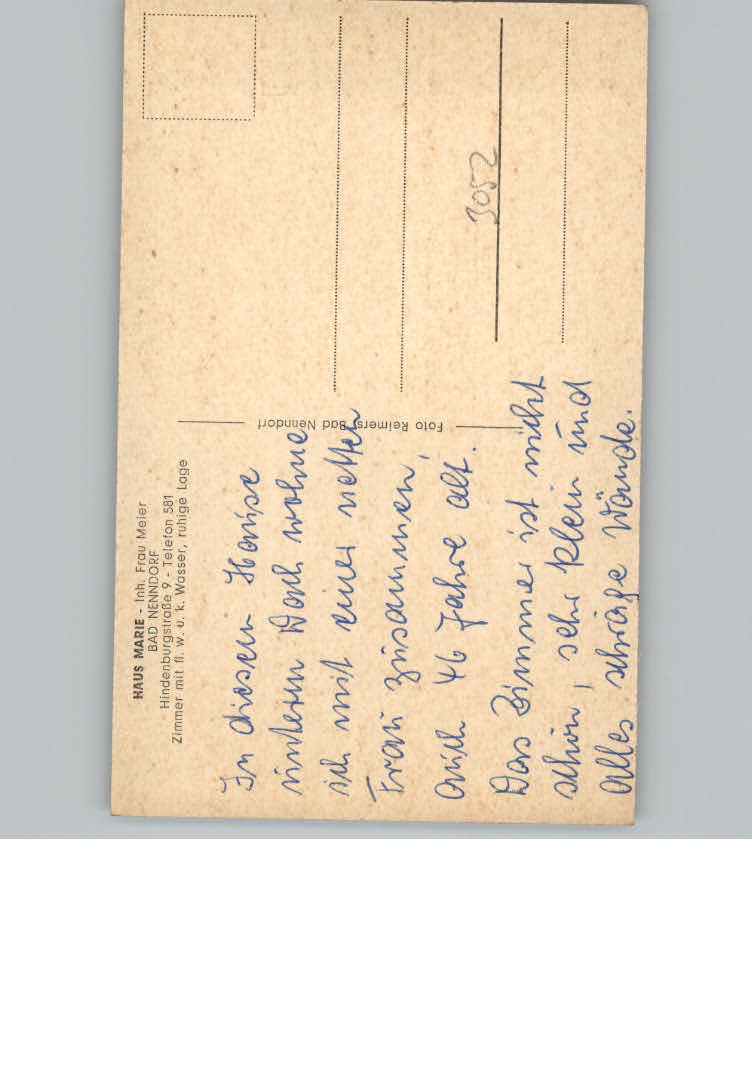 HAUS MARIE - Inh. Frau Meier
BAD NENNDORF
Hindenburgstraße 9 - Telefon 581
Zimmer mit fl. w. u. k. Wasser, ruhige Lage
In diesem Hause
unterm Dach wohne
ich mit einer netten
Frau zusammen,
auch 46 Jahre alt.
Das Zimmer ist nicht
schön, sehr klein und
alles schräge Wände.
Foto Reimers, Bad Nenndorf
3052